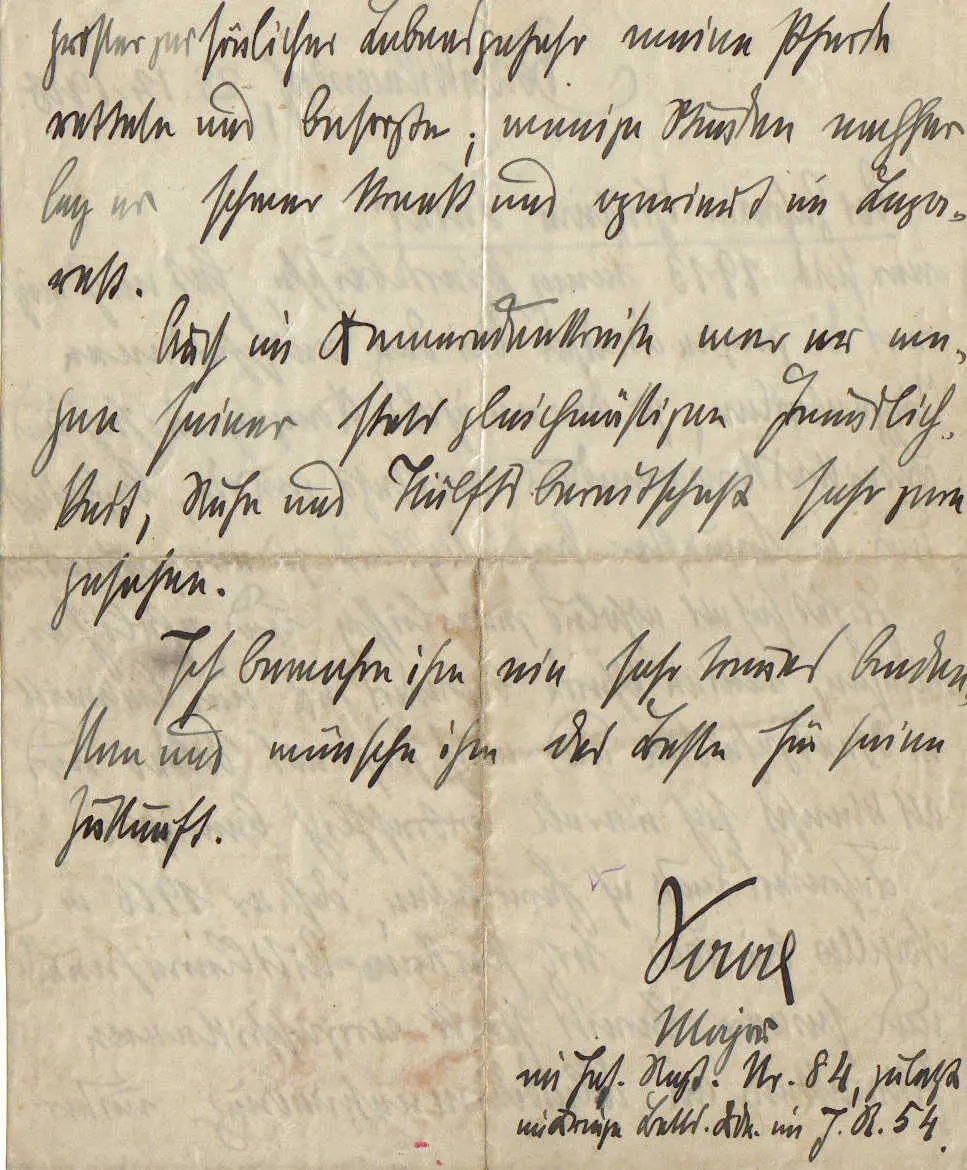 grösster persönlicher Lebensgefahr meine Pferde
rettete und besorgte; wenige Stunden nachher
lag er schwer krank und operiert im Laza-
rett.
Auch im Kameradenkreise war er we-
gen seiner stets gleichmässigen Freundlich-
keit, Ruhe und Hülfsbereitschaft sehr gern
gesehen.
Ich bewahre ihm ein sehr treues Anden-
ken und wünsche ihm das Beste für seine
Zukunft.
Major
im Inf. Regt. Nr. 84, zuletzt
im Kriege Batls. Kdr. im J. R. 54.